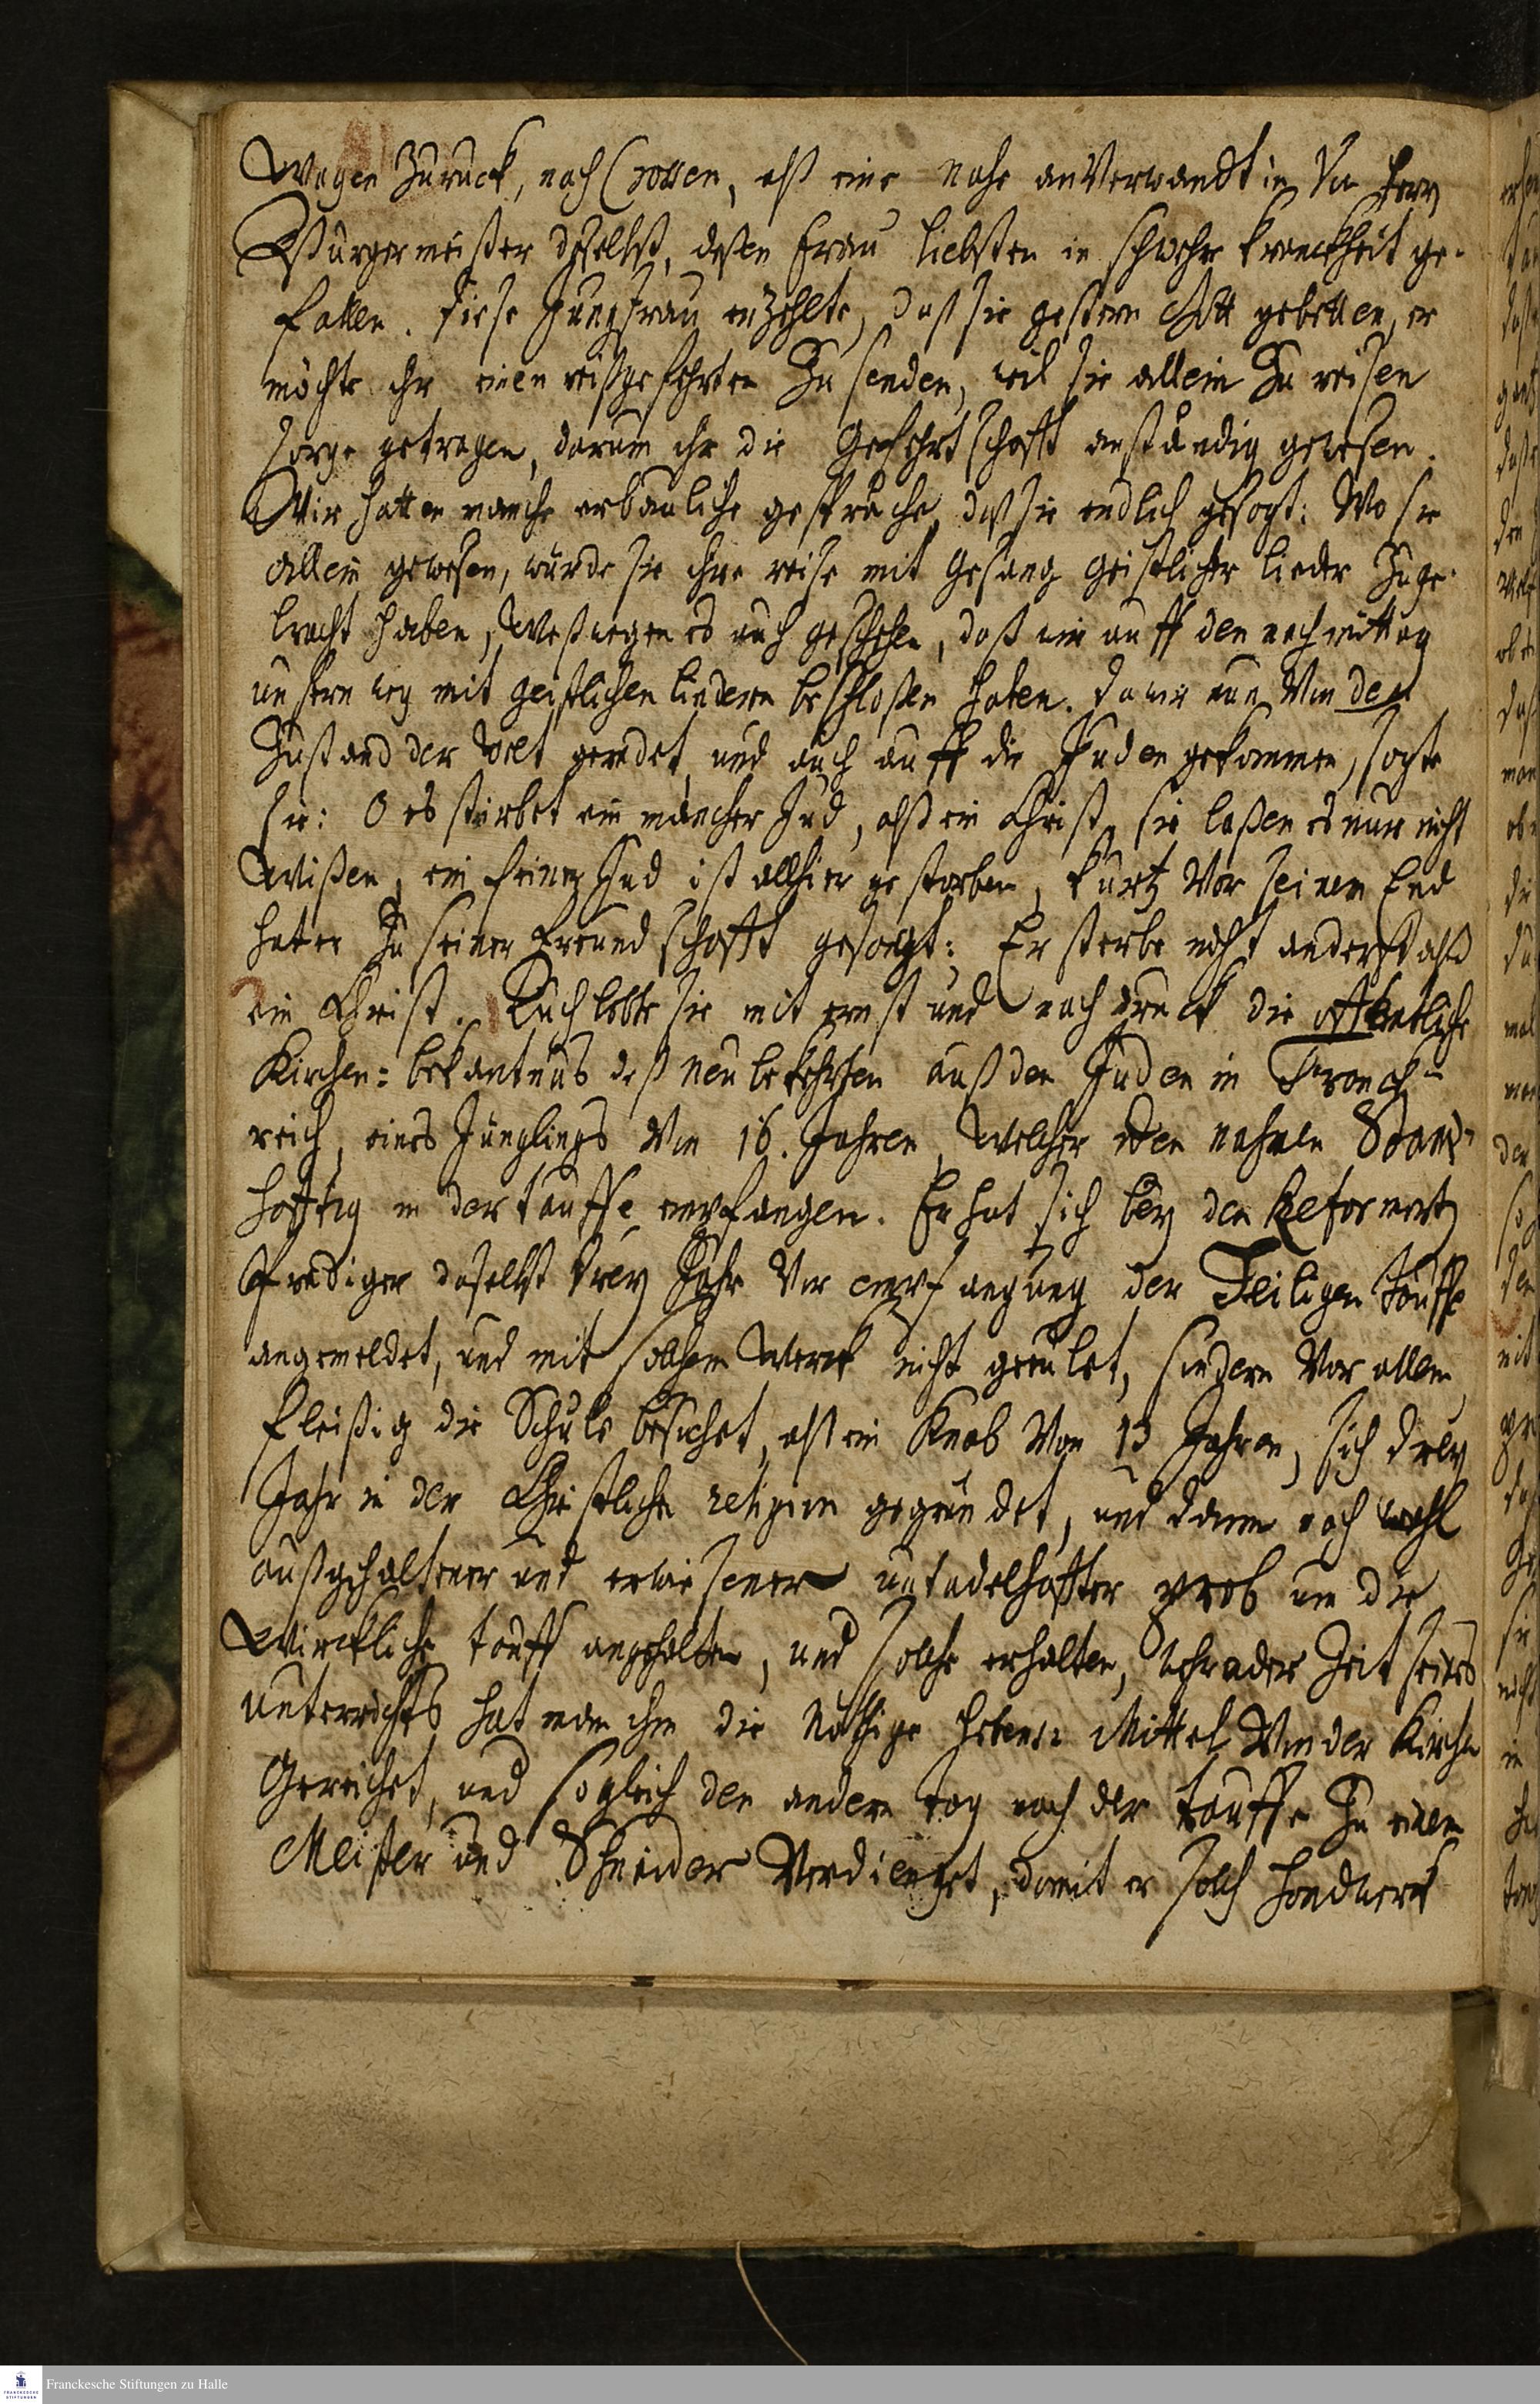 Wagen Zurück, nach Crossen, alß eine nahe anverwandtin Von Herrn
Bürgermeister daselbst, deßen Frau liebsten in schwehre kranckheit ge-
fallen. Diese Jungfrau erzehlte, daß sie gestern Gott gebetten, er
möchte ihr einen reißgefehrten Zu senden, weil sie allein Zu reisen
sorge getragen, darum ihr die Gefehrtschafft anständig gewesen.
Wir hatten manche erbauliche gespräche, daß sie endlich gesagt: Wo sie
allein gewesen, würde sie ihre reise mit Gesang geistlicher lieder Zuge-
bracht haben, Weßwegen es auch geschehen, daß wir auff den nachmittag
unsern weg mit geistlichen liedern beschloßen haben. Da wir nun Von dem
Zustand der Welt geredet, und auch auff die Juden gekommen, sagte
sie: O es stirbet ein mancher Jud, alß ein Christ, sie laßen es nur nicht
Wißen, ein feiner Jud ist allhier gestorben, kurtz Vor seinem End
hat er Zu seiner Freundschafft gesagt: Er sterbe nicht anderst alß
ein Christ. Auch lobte sie mit ernst und nachdruck die offentliche
Kirchen-bekantnus deß neubekehrten auß den Juden in Franck-
reich, eines Jünglings Von 16. Jahren, Welcher den nahmen Stand-
hafftig in der tauffe empfangen. Er hat sich bey den Reformirten
Prediger daselbst drey Jahr Vor empfangung der Heiligen tauffe
angemeldet, und mit solchem Werck nicht geeilet, sondern Vor allem
fleißig die Schule besuchet, alß ein Knab Von 13 Jahren, sich drey
Jahr in der Christlichen religion gegründet, und dann nach wohl
außgehaltener und erwiesener untadelhaffter prob um die
Wirckliche tauff angehalten, und solche erhalten, Während der Zeit seines
unterrichts hat man ihm die Nöthige lebens-Mittel Von der Kirche
Gereichet, und sogleich den andern tag nach der tauffe Zu einem
Meister und Schneider Verdinget, damit er solch handwerck
Franckesche Stiftungen zu Halle